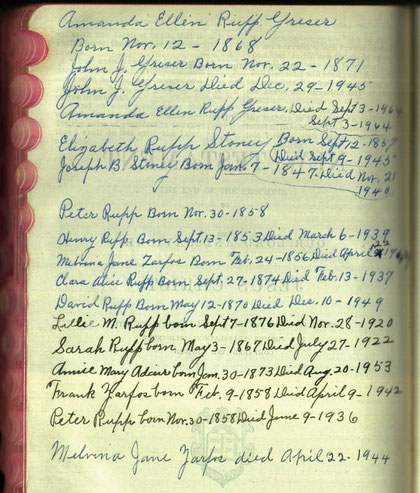 Amanda Ellen Rupp Greser
Born Nov. 12 - 1868
John J. Greser Born Nov. 22 - 1871
John J. Greser Died Dec. 29 - 1945
Amanda Ellen Rupp Greser, Died Sept 3 - 1964
Sept 3 - 1964
Elizabeth Rupp Stoney Born Sept 12 - 1857
Died Sept 9 - 1945
Joseph B. Stoney Born Jan. 7 - 1847. Died Nov. 21
1940
Peter Rupp Born Nov. 30 - 1858
Henry Rupp Born Sept. 13 - 1853 Died March 6 - 1939
Melvina Jane Zarfos Born Feb. 24 - 1856 Died April 22
Clara Alice Rupp Born Sept. 27 - 1874 Died Feb. 13 - 1937
David Rupp Born May 12 - 1870 Died Dec. 10 - 1949
Lillie M. Rupp born Sept 7 - 1876 Died Nov. 28 - 1920
Sarah Rupp born May 3 - 1867 Died July 27 - 1922
Annie Mary born Jan. 30 - 1873 Died Aug. 20 - 1953
Frank Zarfos born Feb. 9 - 1858 Died April 9 - 1942
Peter Rupp born Nov. 30 - 1858 Died June 9 - 1936
Melvina Jane Zarfos died April 22 - 1944